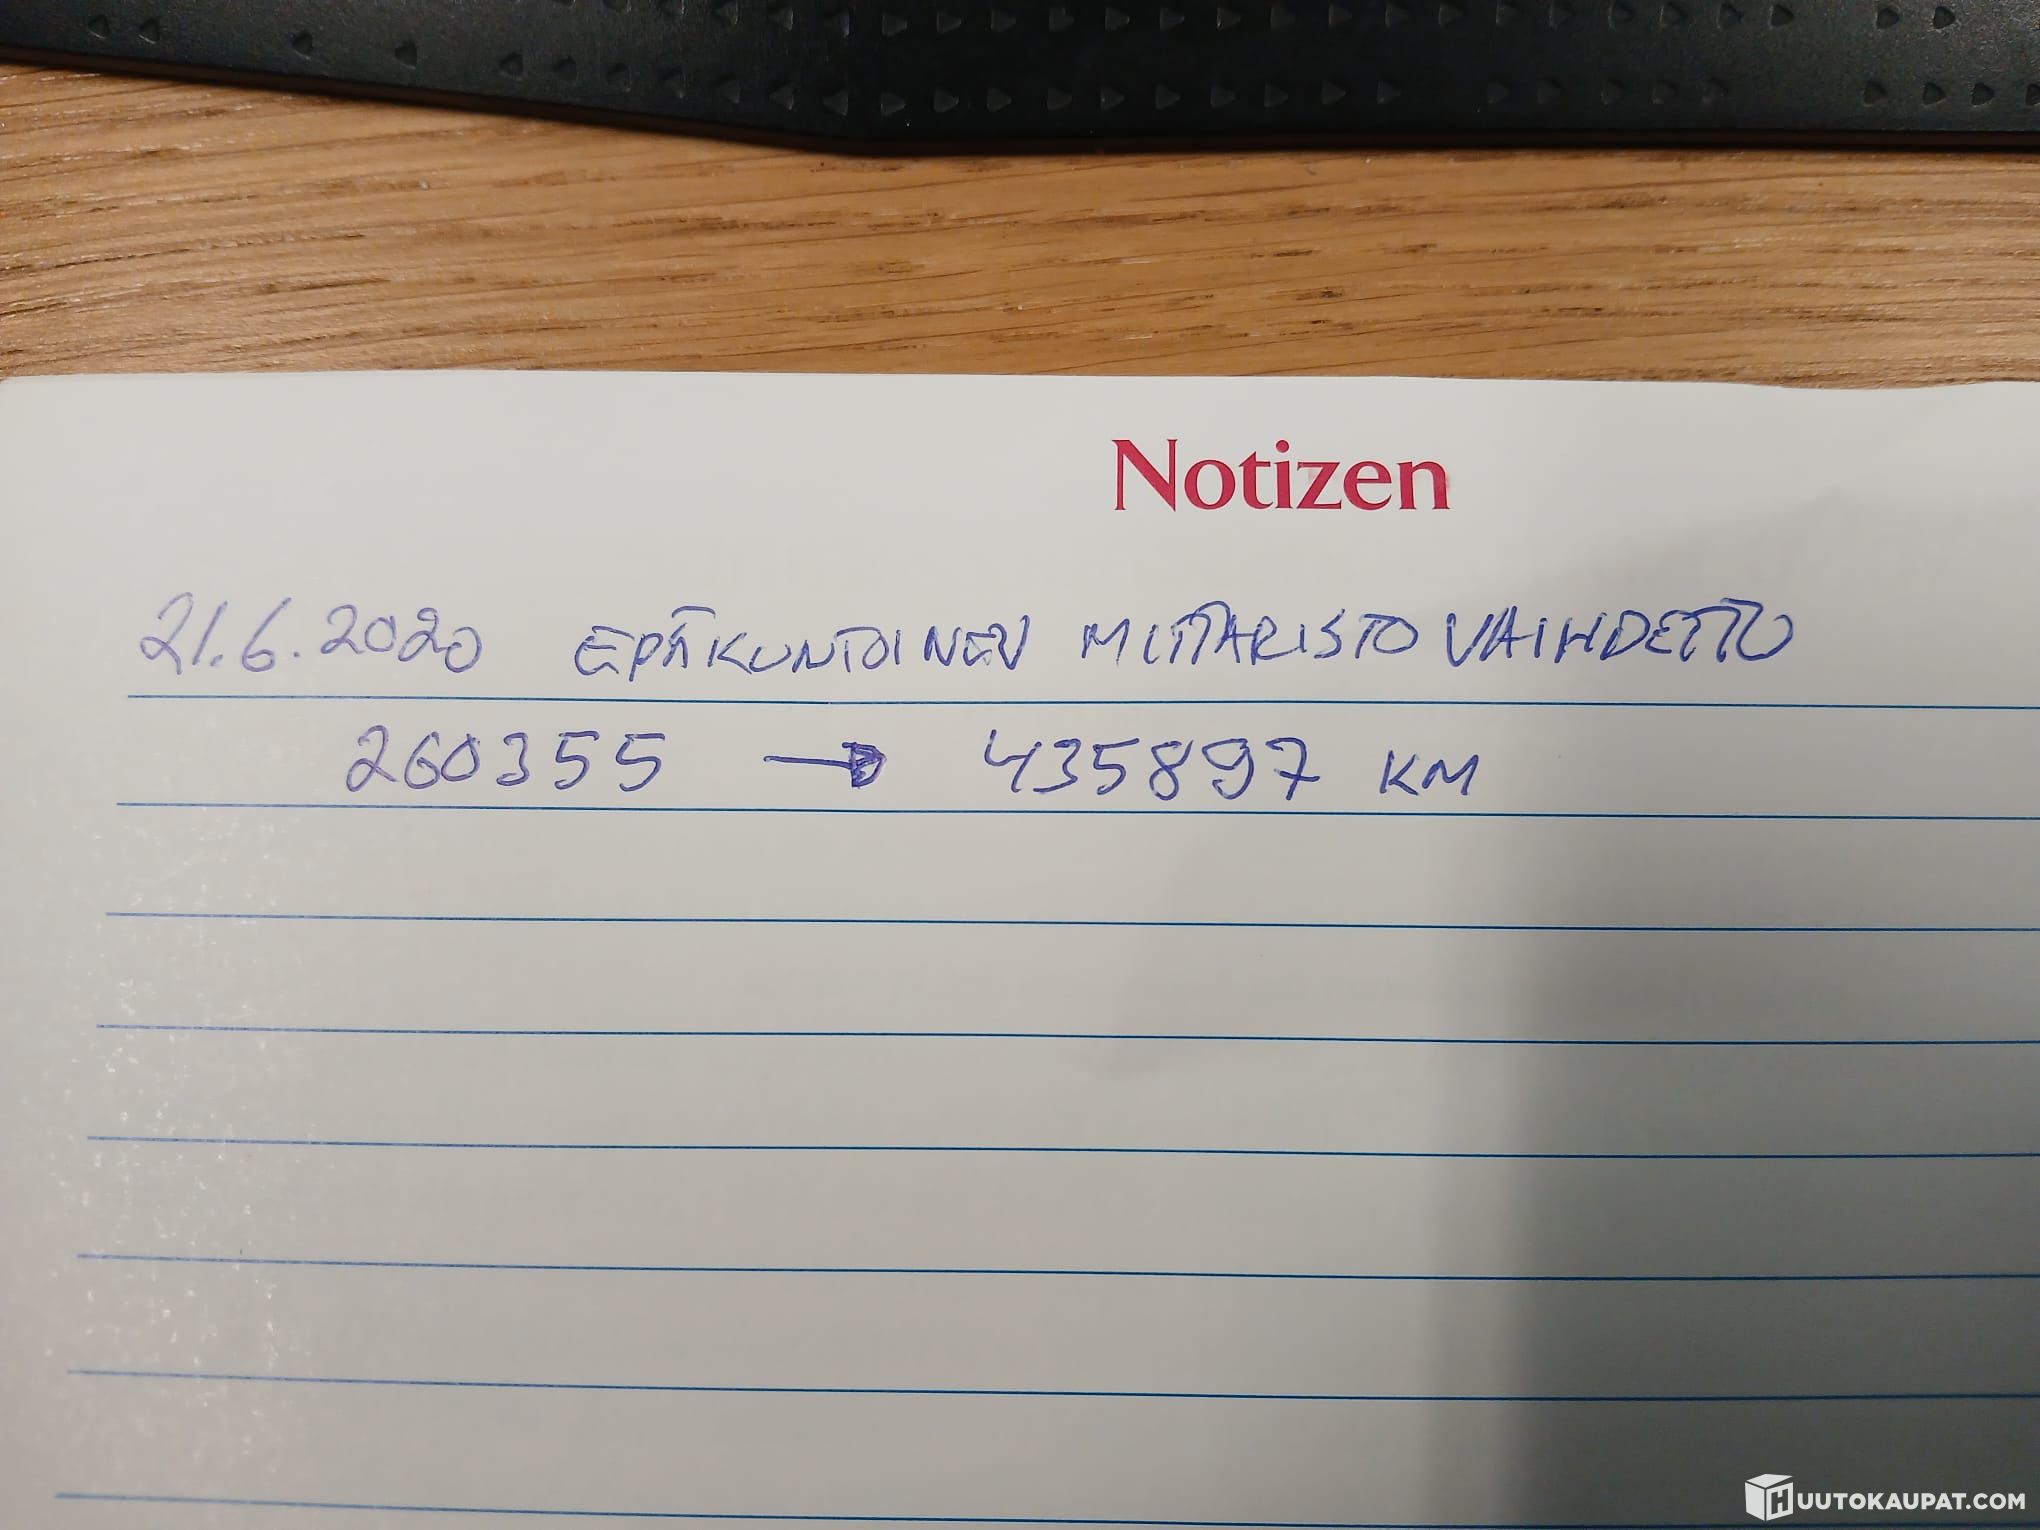 Notizen
21.6.2020 EPÄKUNTOINEN MITTARISTO VAIHDETTU
260355 → 435897 KM
HUUTOKAUPAT.COM